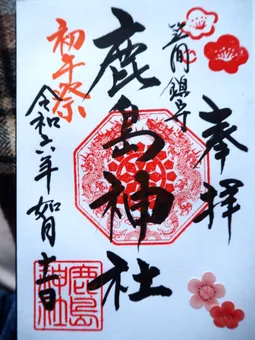 奉拝
笠間鎮守
鹿島神社
初午祭
令和六年 如月 十二日
鹿島神社